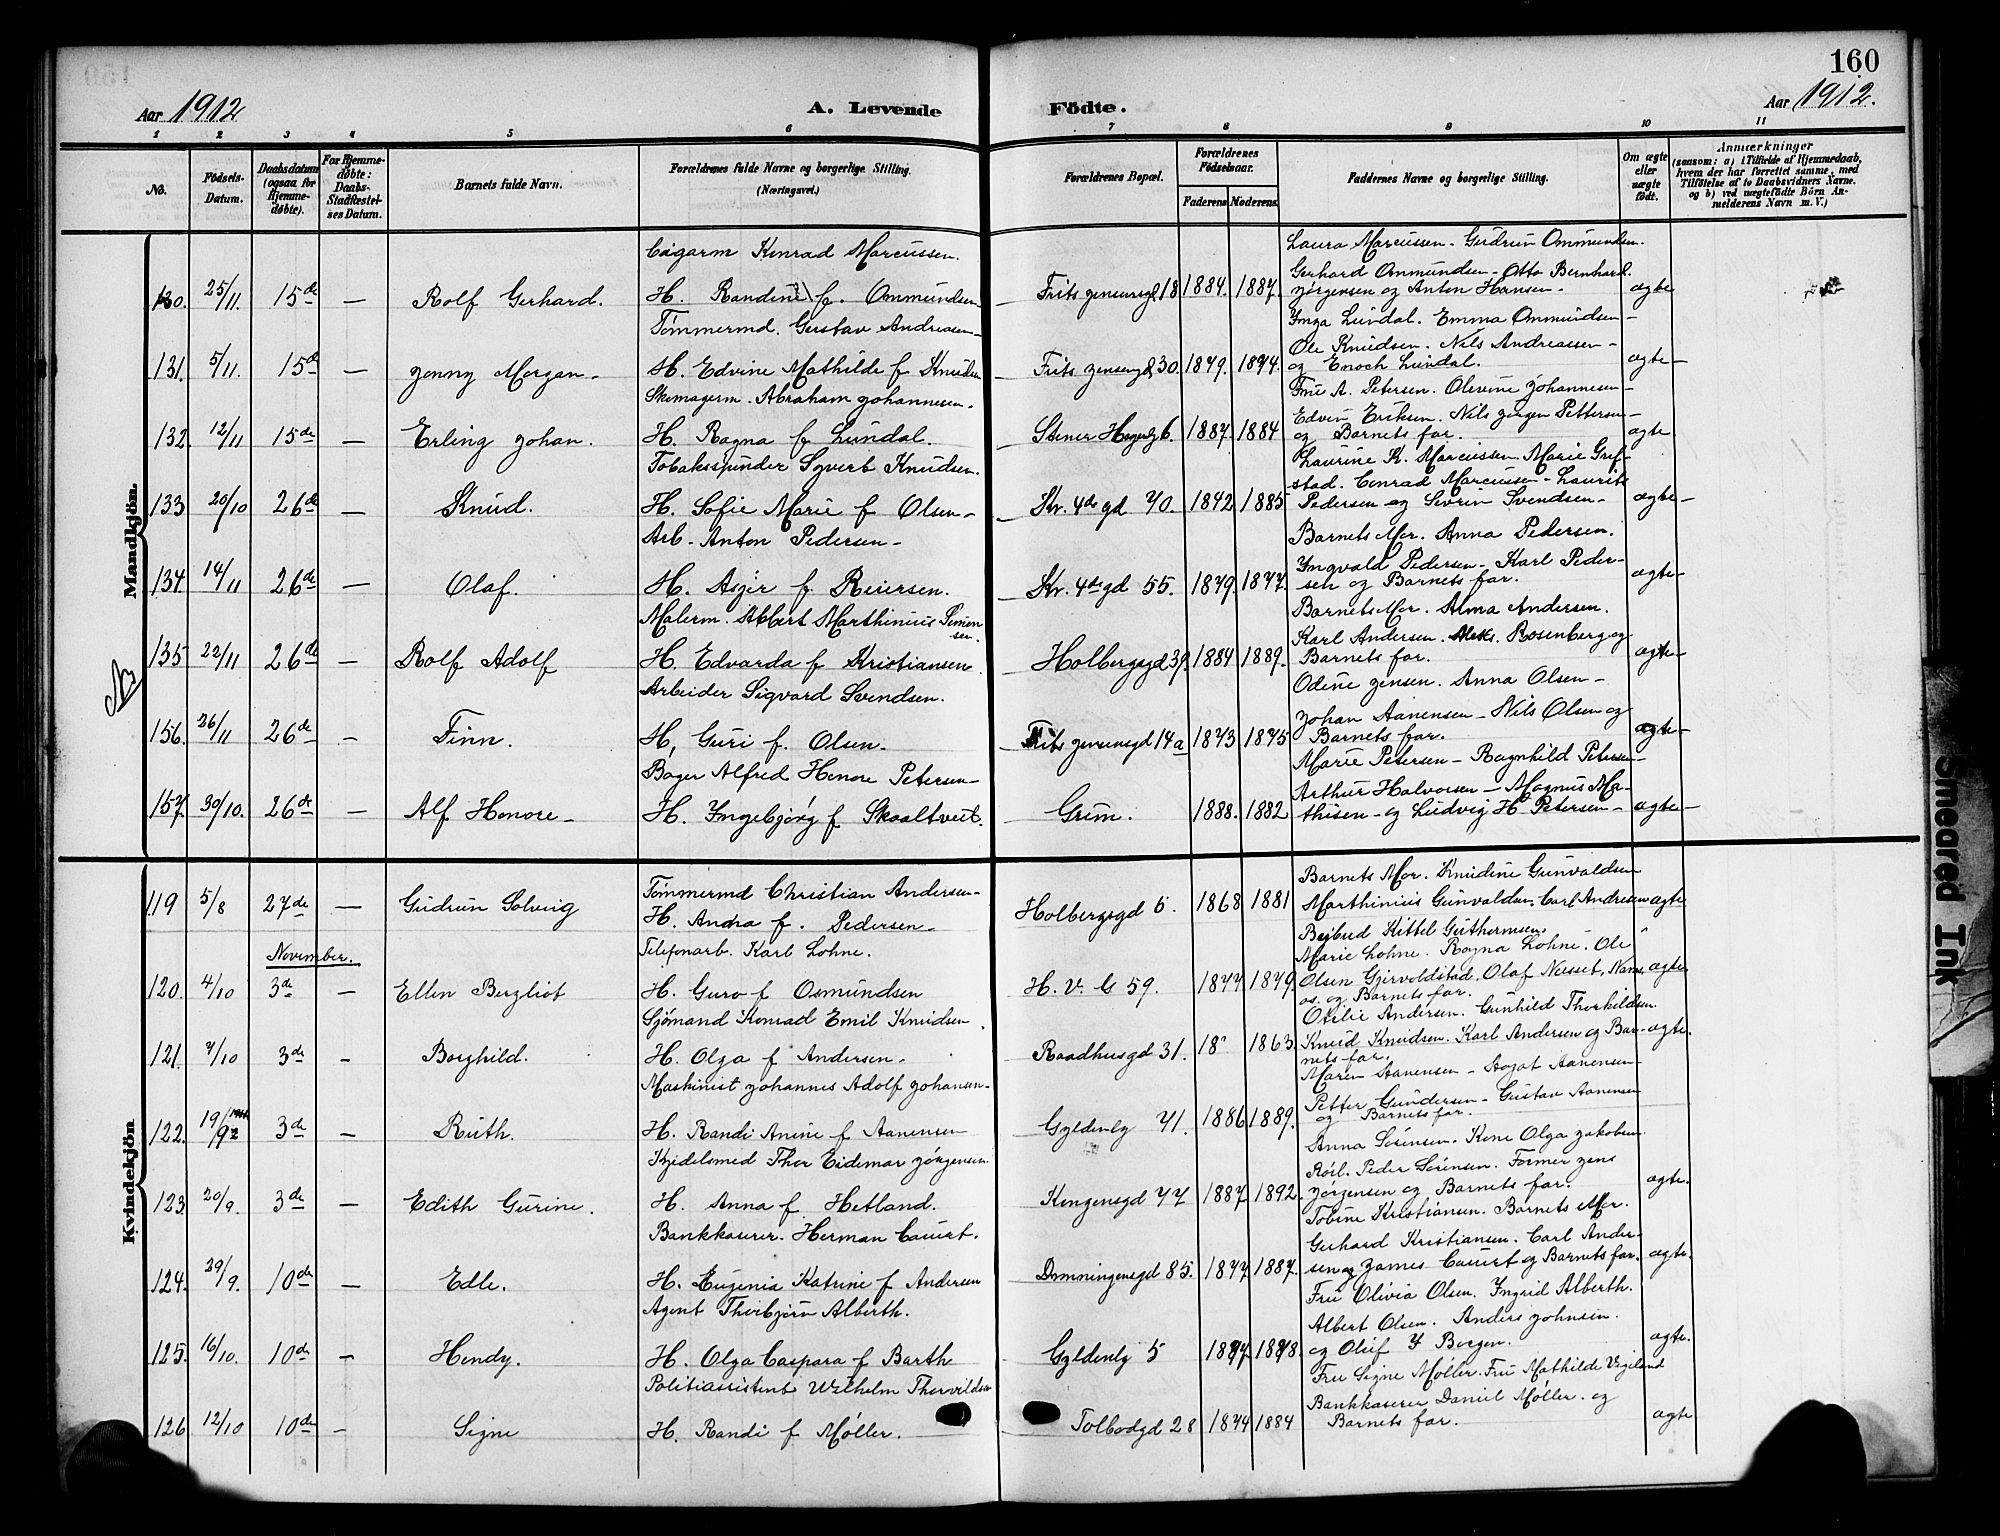 160
Aar 1912
A. Levende
Födte.
Aar 1912.
1 2 3 4 5 6 7 8 9 10 11
No.
Födsels-
Datum.
Daabsdatum
(ogsaa for
Hjemme-
døbte).
For Hjemme-
døbte:
Daabs-
Stadfæstel-
ses Datum.
Barnets fulde Navn.
Forældrenes fulde Navne og borgerlige Stilling.
(Næringsvei.)
Forældrenes Bopæl.
Forældrenes
Fødselsaar.
Faderens Moderens.
Faddernes Navne og borgerlige Stilling.
Om ægte
eller
uægte
født.
Anmærkninger
(saasom: a) i Tilfælde af Hjemmedaab,
hvem der har forrettet samme, med
Tilføielse af to Daabsvidners Navne.
og b) ved uægtefödte Börn An-
melderens Navn m. V.)
Mandkjön.
Cigarm Konrad Marcussen. Laura Marcussen - Gudrun Ommundsen.
Gerhard Ommundsen - Otto Bernhard
130. 25/11. 15de — Rolf Gerhard. H. Randine f. Ommundsen Frits Jensensgd 18 1884. 1887. Jørgensen og Anton Hansen - ægte
Tømmermd. Gustav Andreasen - Inga Lundal. Emma Ommundsen -
Ole Knudsen. Nils Andreassen -
131. 5/11. 15de — Jenny Morgan - H. Edvine Mathilde f Knudsen Frits Jensengd 30. 1879. 1874. og Enoch Lundal. ægte -
Skomagerm. Abraham Johannesen. Frue A. Petersen. Olevine Johannesen -
Edvin Eriksen. Nils Jørgen Pettersen -
132. 12/11 15de — Erling Johan. H. Ragna f Lundal. Stener Hagensg 6. 1887 1884 og Barnets far. ægte
Tobaksspinder Syvert Knudsen. Laurine K. Marcussen. Marie Gref-
stad. Conrad Marcussen - Laurits
133. 20/10 26de — Knud. H. Sofie Marie f Olsen - Kr. 4des gd 70. 1842 1885 Pedersen og Sevrin Svendsen - ægte -
Arb - Anton Pedersen - Barnets Mor. Anna Pedersen.
Ingvald Pedersen - Karl Peder-
134 14/11 26de — Olaf. H. Asjer f. Reiersen. Kr. 4des gd 55. 1879. 1877. sen og Barnets far. ægte -
Malerm. Albert Marthinius Simon Barnets Mor. Alma Andersen.
sen.
Karl Andersen. Aleks. Rosenberg og
135 22/11 26de — Rolf Adolf H. Edvarda f Kristiansen Holbergsgd 39. 1884 1889. Barnets far. ægte -
Arbeider Sigvard Svendsen. Odine Jensen. Anna Olsen -
Johan Aanensen - Nils Olsen og
156. 26/11 26de — Finn. H, Guri f. Olsen. Frits Jensensgd 14a 1873 1875 Barnets far. ægte -
Bager Alfred Honore Petersen - Marie Petersen - Ragnhild Petersen -
Arthur Halvorsen - Magnus Ma-
157. 30/10. 26de — Alf Honore - H. Ingebjørg f Skaaltveit. Grim. 1888. 1882 thisen - og Ludvig H Petersen - ægte -
Kvindekjön
Tømmermd Christian Andersen - Barnets Mor. Knudine Gunvaldsen
119 5/8 27de — Gudrun Solveig H. Andra f. Pedersen - Holbergsgd 6. 1868 1881 Marthinius Gunvaldsen. Carl Andresen ægte
November.
Telefonarb. Karl Lohne. Beibud Kittel Guthormsen.
Marie Lohne. Ragna Lohne. Ole
120. 4/10 3de — Ellen Bergliot H. Guro f Osmundsen H. V. G 59. 1877 1879 Olsen Gjervoldstad. Olaf Nesset, Nams ægte
os. og Barnets far.
Sjømand Konrad Emil Knudsen Otilie Andersen. Gunhild Thorkildsen
121. 7/10 3de - Borghild. H. Olga f Andersen. Raadhusgd 31. 18" 1863. Knud Knudsen. Karl Andersen og Bar- ægte.
nets far.
Maskinist Johannes Adolf Johansen - Maren Aanensen - Aagot Aanensen
Petter Gundersen - Gustav Aanensen
122. 19/9 3de — Ruth. H. Randi Anine f Aanensen Gyldenlg 71. 1886 1889. og Barnets far.
Kjedelsmed Thor Eidemar Jørgensen Anna Sørensen. Kone Olga Jakobsen
Røsl. Peder Sørensen. Former Jens
123 20/9. 3de — Edith Gurine. H. Anna f. Hetland. Kongensgd 77 1887 1892. Jørgensen og Barnets far. ægte.
Bankkaserer. Herman Cauert. Tobine Kristiansen. Barnets Mor.
Gerhard Kristiansen. Carl Ander-
124. 29/9. 10de — Edle. H. Eugenia Katrine f Andersen Dronningensgd 85. 1877. 1887. sen og James Cauert og Barnets far. ægte
Agent Thorbjørn Alberth. Fru Olivia Olsen. Ingrid Alberth.
Albert Olsen. Anders Johnsen.
125. 16/10. 10de — Hendy. H. Olga Caspara f Barth Gyldenlg 5 og Oluf F Borgen. ægte.
Politiassistent Wilhelm Thorvildsen Fru Signe Møller. Fru Mathilde Vigeland
Bankkaserer Daniel Møller. og
126 12/10 10de — Signe H. Randi f Møller. Tolbodgd 28 1874 1884 Barnets far. ægte
Smeared Ink